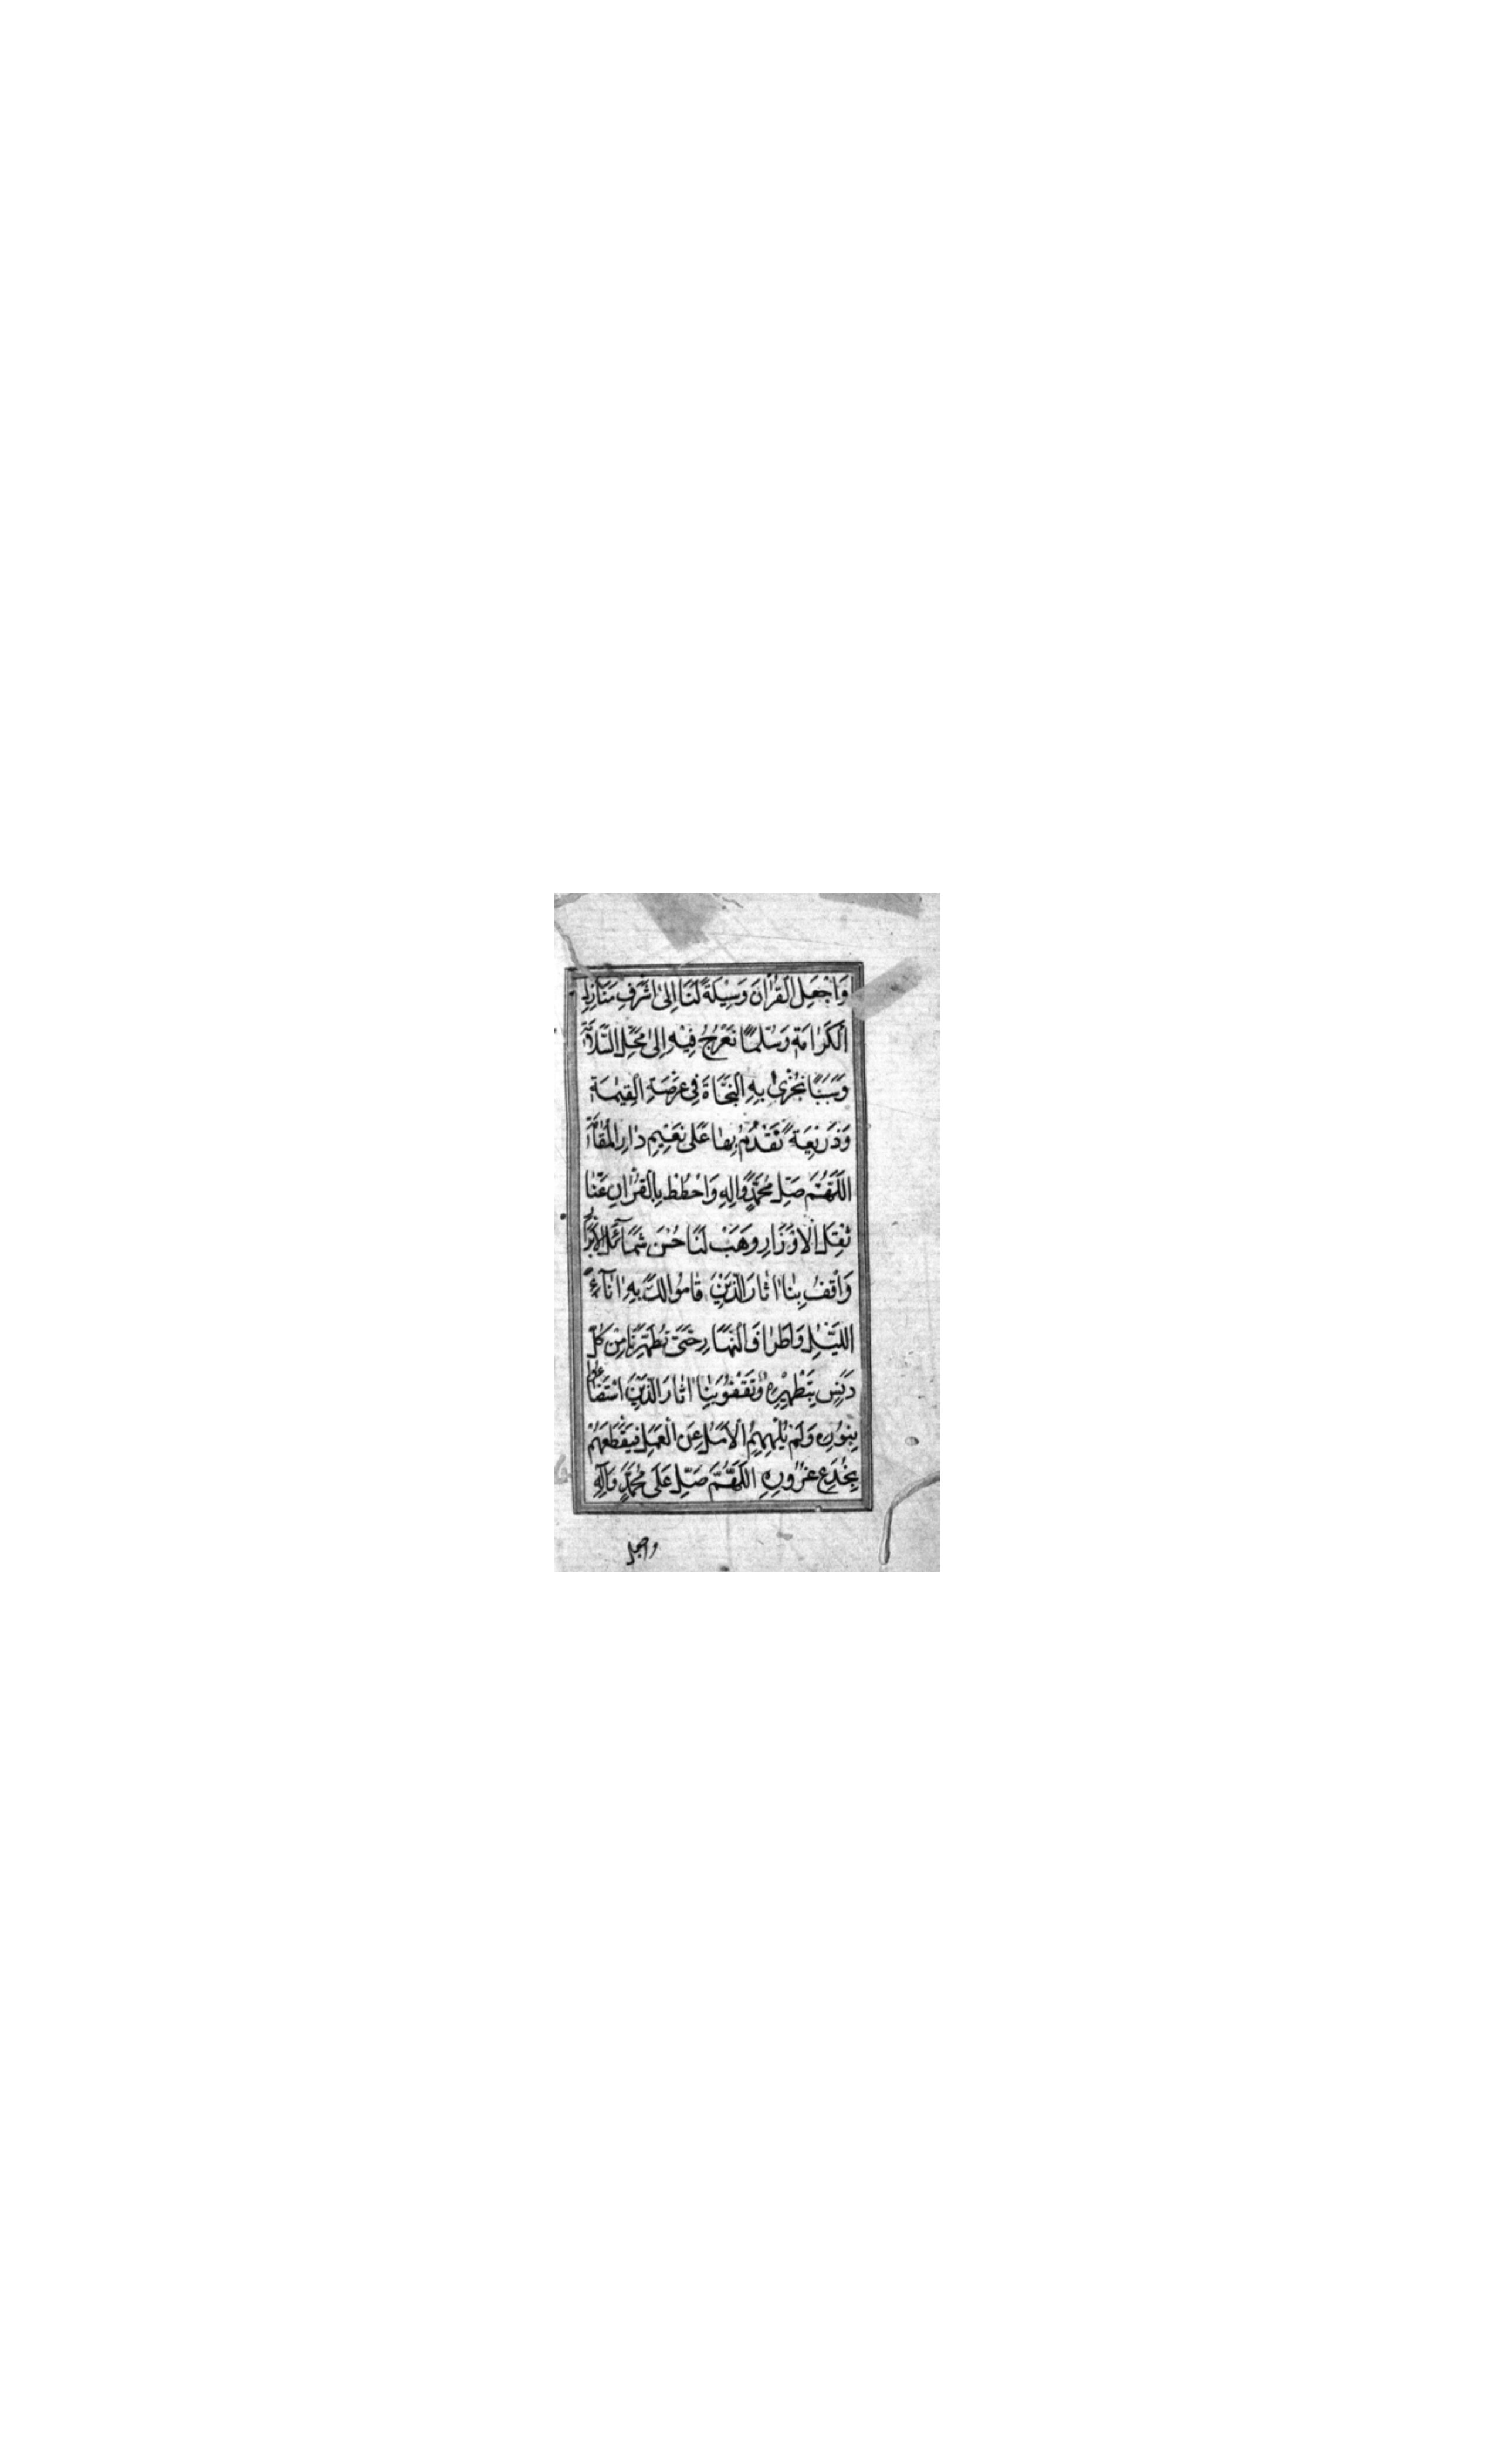 وَاجْعَلِ الْقُرْاٰنَ وَسِيْلَةً لَنَا اِلىٰ اَشْرَفِ مَنَازِلِ
الْكَرٰامَةِ وَسُلَّمًا نَعْرُجُ فِيْهِ اِلىٰ مَحَلِّ السَّلاَمَةِ
وَسَبَبًا نُجْزىٰ بِهِ النَّجَاةَ فِي عَرْصَةِ الْقِيٰمَةِ
وَذَرِيْعَةً نَقْدُمُ بِهٰا عَلىٰ نَعِيْمِ دٰارِ الْمُقٰامَةِ
اَللّٰهُمَّ صَلِّ مُحَمَّدٍ وَاٰلِهِ وَاحْطُطْ بِالْقُرْاٰنِ عَنّٰا
ثِقْلَ الْاَوْزَارِ وَهَبْ لَنَا حُسْنَ شَمَآئِلِ الْاَبْرَارِ
وَاقْفُ بِنٰا اٰثٰارَ الَّذِيْنَ قٰامُوا لَكَ بِهِ اٰنٰآءَ
اللَّيْلِ وَاَطْرٰافَ النَّهَارِ حَتّىٰ تُطَهِّرَنَا مِنْ كُلِّ
دَنَسٍ بِتَطْهِيْرِهِ وَتَقْفُوَ بِنٰا اٰثٰارَ الَّذِيْنَ اسْتَضَاؤُا
بِنُورِهِ وَلَمْ يُلْهِهِمُ الْاَمَلُ عَنِ الْعَمَلِ فَيَقْطَعَهُمْ
بِخُدَعِ غُرُورِهِ اَللّٰهُمَّ صَلِّ عَلىٰ مُحَمَّدٍ وَاٰلِهِ
واجعل